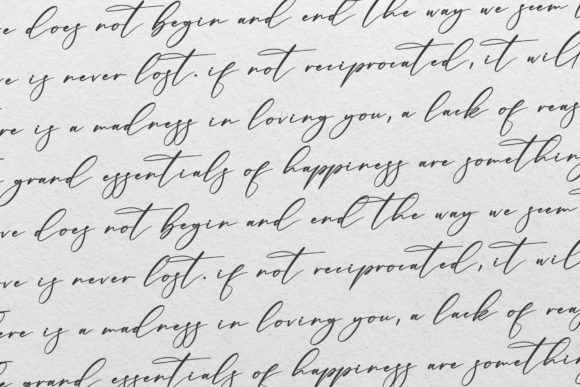 ve does not begin and end the way we seem t
ve is never lost. if not reciprocated, it will
ere is a madness in loving you, a lack of reas
grand essentials of happiness are something
ove does not begin and end the way we seem t
ove is never lost. if not reciprocated, it will
here is a madness in loving you, a lack of reas
grand essentials of happiness are something